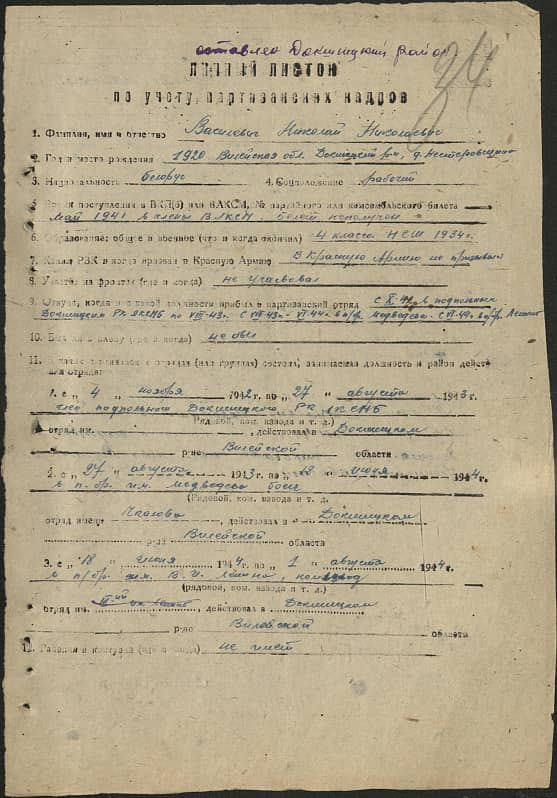 оставлен Докшицкий район
34
ЛИЧНЫЙ ЛИСТОК
по учету партизанских кадров
1. Фамилия, имя и отчество Василевич Николай Николаевич
2. Год и место рождения 1920 Вилейская обл. Докшицкий р-н, д. Нестеровщина
3. Национальность белорус 4. Соцположение рабочий
5. Время поступления в ВКП(б) или ВЛКСМ, № партийного или комсомольского билета
Май 1941 в члены ВЛКСМ. билет не получен
6. Образование: общее и военное (что и когда окончил) 4 класса НСШ 1934 г.
7. Каким РВК и когда призван в Красную Армию В Красную Армию не призывался
8. Участие на фронтах (где и когда) не участвовал
9. Откуда, когда и с какой должности прибыл в партизанский отряд в подпольный
Докшицкий РК ЛКСМБ по VIII-43 г. С VIII-43 г. - VI-44 в п/бр. Медведева. С VI-44 в п/бр. Ленина
10. Был ли в плену (где и когда) не был
11. В каких партизанских отрядах (или группах) состоял, занимаемая должность и район действия отряда:
1. с „ 4 „ ноября 1942 г. по „ 27 „ августа 1943 г.
член подпольного Докшицкого РК ЛКСМБ
(Рядовой, ком. взвода и т. д.)
отряд им. , действовал в Докшицком
р-не Вилейской области.
2. с „ 27 „ августа 1943 г. по „ 18 „ июня 1944 г.
в п. бр. им. Медведева боец
(Рядовой, ком. взвода и т. д.
отряд имени Чкалова , действовал в Докшицком
р-не Вилейской области
3. с „ 18 „ июня 1944 г. по „ 1 „ августа 1944 г.
в п/бр. им. В. И. Ленина, комвзвод
(рядовой, ком. взвода и т. д.)
отряд им. , действовал в Докшицком
р-не Вилейской области
12. Ранения и контузии (где и когда) не имеет